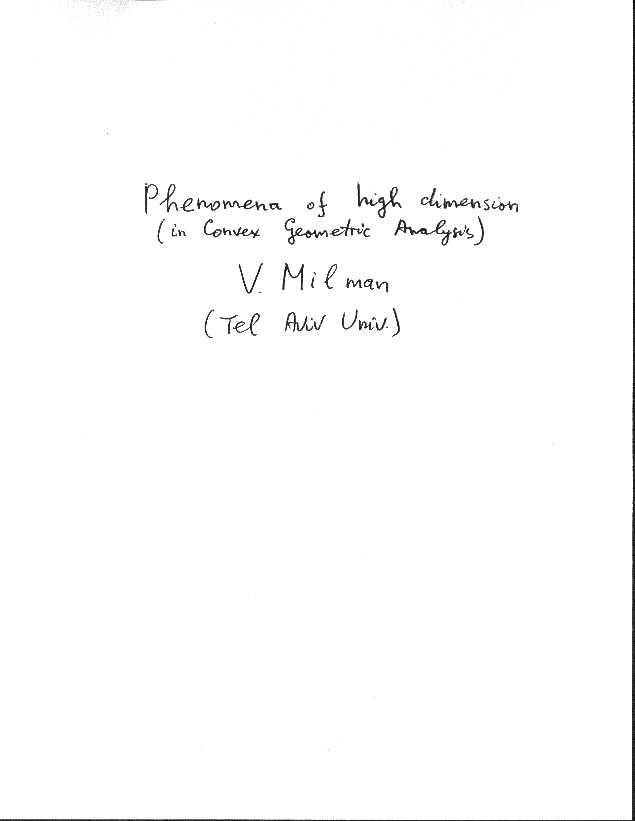 Phenomena of high dimension
(in Convex Geometric Analysis)
V. Milman
(Tel Aviv Univ.)